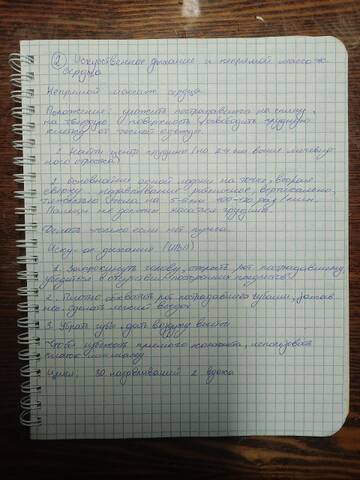 2 Искусственное дыхание и непрямой массаж
сердца
Непрямой массаж сердца
Положение: уложить пострадавшего на спину,
на твёрдую поверхность, освободить грудную
клетку от тесной одежды.
1. Найти центр грудины (на 2 см выше мечевид-
ного отростка)
2. одной ладони на точку, вторую
сверху надавливания вертикально,
на 5-6 см 100-120 раз/мин.
Пальцы не должны касаться грудины.
Делать только если нет пульса
Иску-ое дыхание (ИВЛ)
1. Запрокинуть голову, открыть рот пострадавшему,
убедится в отсутствии посторонних предметов
2. Плотно обхватить рот пострадавшего губами, зажав
нос, сделать выдох
3. Убрать губы, дать воздуху выйти
Чтобы избежать прямого контакта, использовать
платок или маску
Цикл: 30 надавливаний 2 вдоха